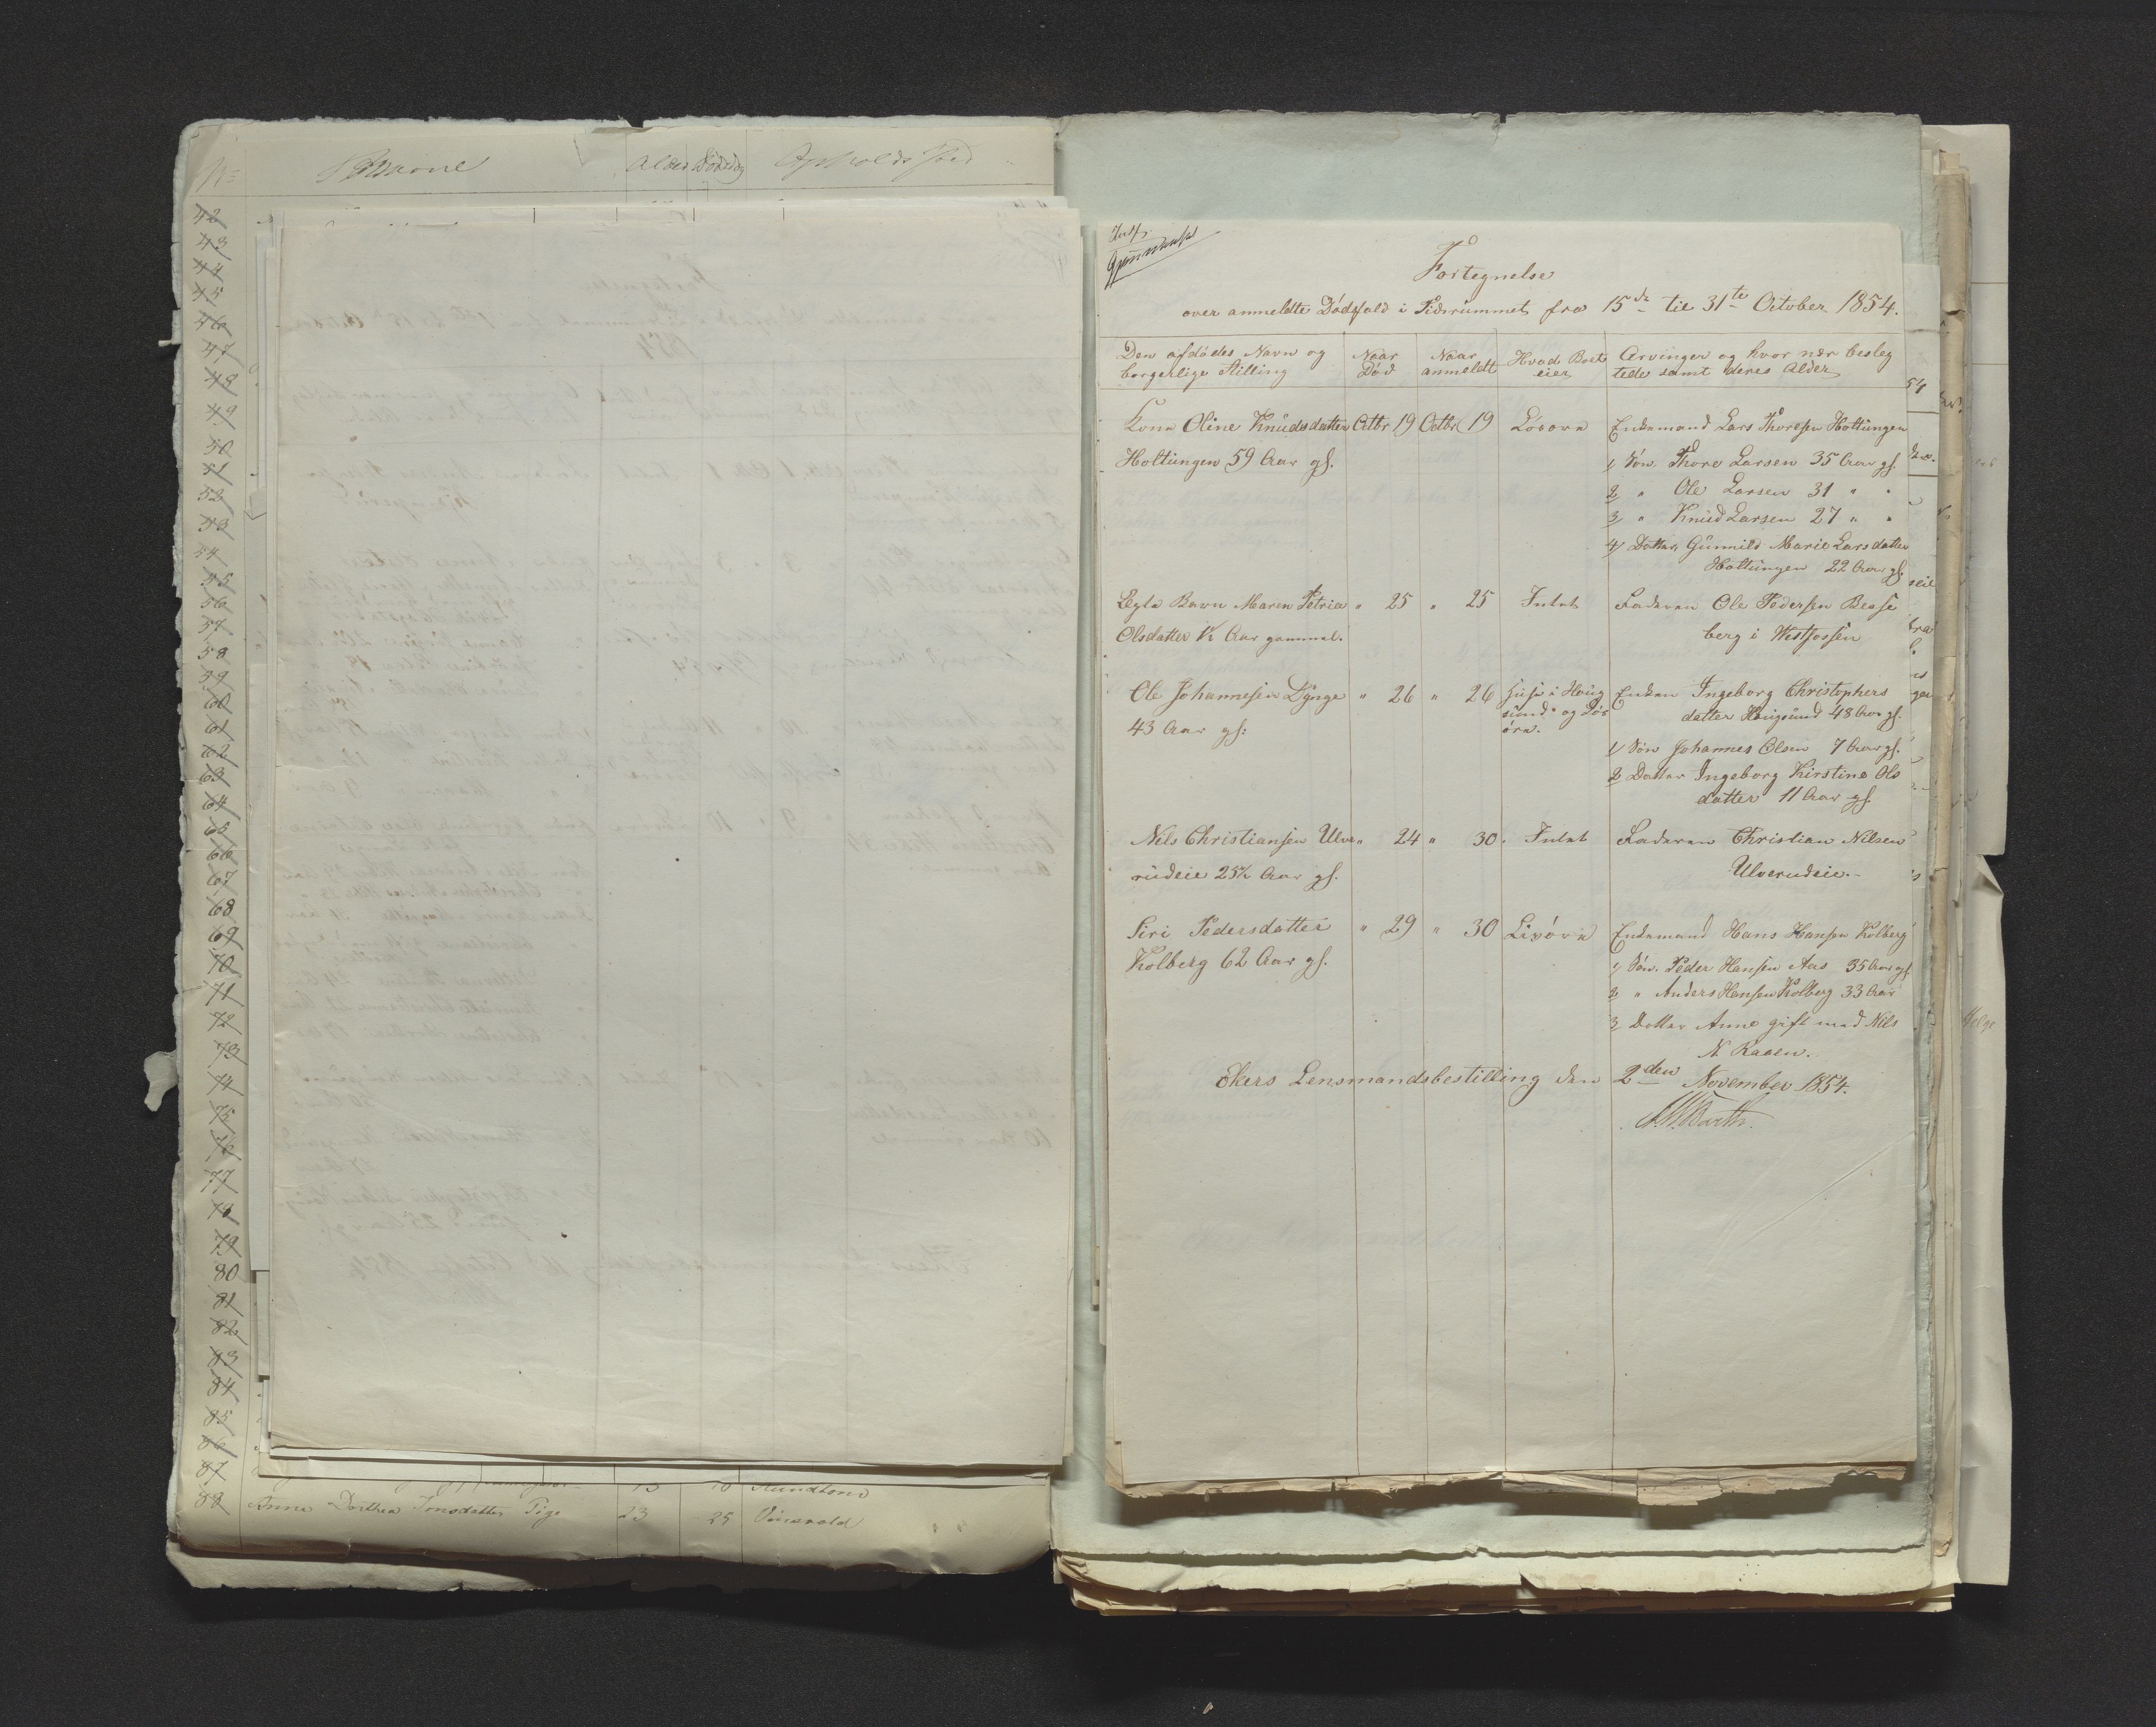 No
Navne
Alder
Dødsdag
Opholds Sted
42
43
44
45
46
47
48
49
50
51
52
53
54
55
56
57
58
59
60
61
62
63
64
65
66
67
68
69
70
71
72
73
74
75
76
77
78
79
80
81
82
83
84
85
86
87
88 Anne Dorthea Jonsdatter Pige 23 25
Fortegnelse
over anmeldte Dødsfald i Tidsrummet fra 15de til 31te October 1854.
Den afdødes Navn og borgerlige Stilling
Naar Død
Naar anmeldt
Hvad Boet eier
Arvinger og hvor nær besleg
tede samt deres Alder
Kone Oline Knudsdatter Octbr 19 Octbr 19 Løsøre Enkemand Lars Thoresen Holtungen
Holtungen 59 Aar gl. 1/ Søn Thore Larsen 35 Aar gl.
2 " Ole Larsen 31 " "
3/ " Knud Larsen 27 " "
4/ Datter Gunnild Marie Larsdatter
Holtungen 22 Aar gl.
Ægte Barn Maren Petria " 25 " 25 Intet Faderen Ole Pedersen
Olsdatter ½ Aar gammel. berg i Vestfossen
Ole Johannesen Dynge " 26 " 26 Huse i Houg Enken Ingeborg Christophers
sund og Løs datter Hougsund 48 Aar gl.
43 Aar gl: øre.
1/ Søn Johannes Olsen 7 Aar gl.
2 Datter Ingeborg Kirstine Ols
datter 11 Aar gl.
Nils Christiansen Ulve " 24 " 30. Intet Faderen Christian Nilsen
rudeie 25½ Aar gl. Ulverudeie.-
Siri Pedersdatter " 29 " 30 Lixøre Enkemand Hans Hansen Kolberg
Kolberg 62 Aar gl. 1/ Søn. Peder Hansen Aas 35 Aar gl.
2 " Anders Hansen Kolberg 33 Aar
3 Datter Anne gift med Nils
N. Kaasen.
Ekers Lensmandsbestilling den 2den November 1854.
Barth.